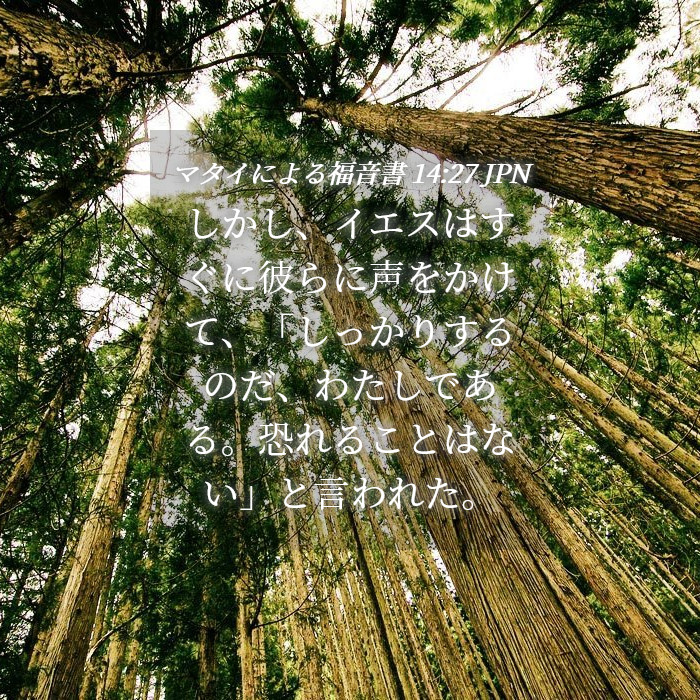 マタイによる福音書 14:27 JPN
しかし、イエスはす
ぐに彼らに声をかけ
て、「しっかりする
のだ、わたしであ
る。恐れることはな
い」と言われた。